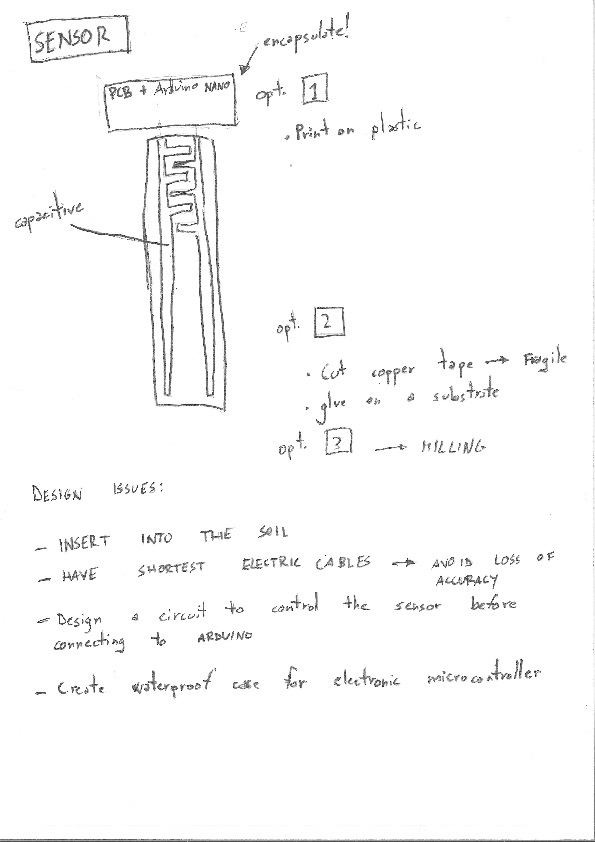 SENSOR
encapsulate!
PCB + Arduino NANO
opt. 1
. Print on plastic
capacitive
opt. 2
. Cut copper tape → Fragile
. glue on a substrate
opt. 3 → MILLING
DESIGN ISSUES:
- INSERT INTO THE SOIL
- HAVE SHORTEST ELECTRIC CABLES → AVOID LOSS OF
ACCURACY
- Design a circuit to control the sensor before
connecting to ARDUINO
- Create waterproof case for electronic microcontroller